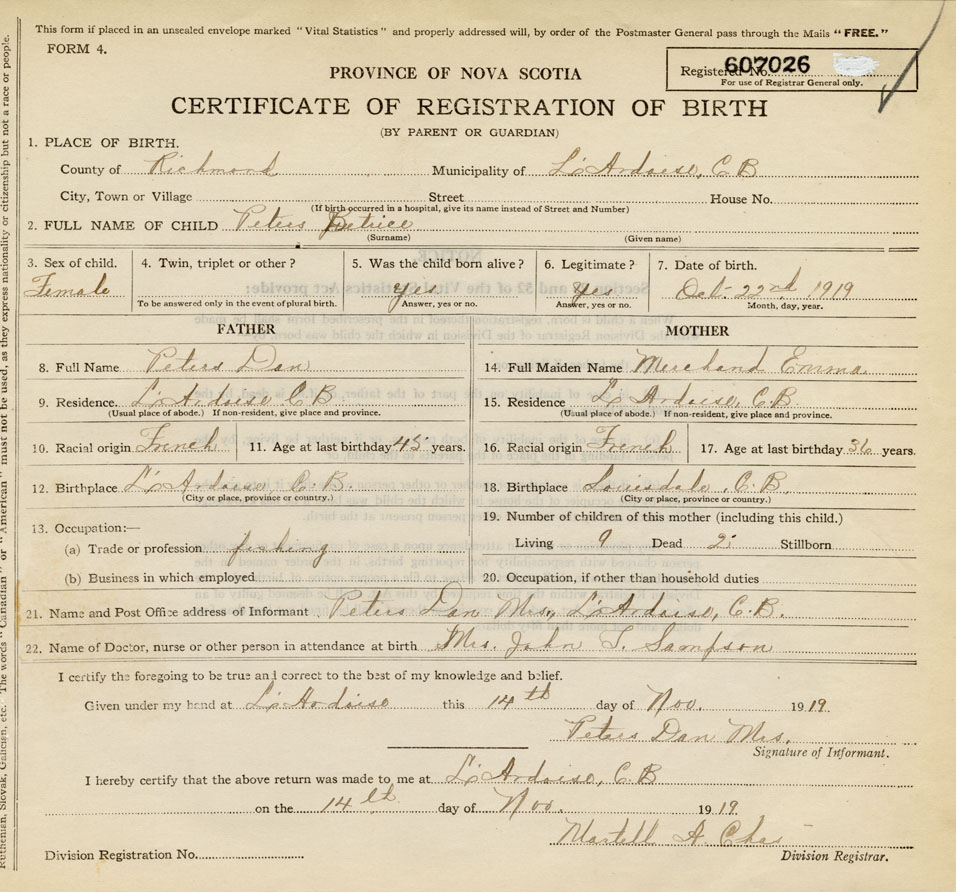 This form if placed in an unsealed envelope marked "Vital Statistics" and properly addressed will, by order of the Postmaster General pass through the Mails "FREE."
FORM 4.
Registered No. 607026
For use of Registrar General only.
PROVINCE OF NOVA SCOTIA
CERTIFICATE OF REGISTRATION OF BIRTH
(BY PARENT OR GUARDIAN)
1. PLACE OF BIRTH.
County of Richmond Municipality of L'Ardoise, C B
City, Town or Village Street House No.
(If birth occurred in a hospital, give its name instead of Street and Number)
2. FULL NAME OF CHILD Peters Betrice
(Surname) (Given name)
3. Sex of child. 4. Twin, triplet or other? 5. Was the child born alive? 6. Legitimate? 7. Date of birth.
Female Yes Yes Oct. 22nd, 1919
To be answered only in the event of plural birth. Answer, yes or no. Answer, yes or no. Month, day, year.
FATHER MOTHER
8. Full Name Peters Dan 14. Full Maiden Name Merchand Emma
9. Residence. L'Ardoise C B 15. Residence L'Ardoise, C.B.
(Usual place of abode.) If non-resident, give place and province. (Usual place of abode.) If non-resident, give place and province.
10. Racial origin French 11. Age at last birthday 45 years. 16. Racial origin French 17. Age at last birthday 36 years.
12. Birthplace L'Ardoise C.B. 18. Birthplace Louisdale, C.B.
(City or place, province or country.) (City or place, province or country.)
13. Occupation:— 19. Number of children of this mother (including this child.)
(a) Trade or profession fishing Living 9 Dead 2 Stillborn
(b) Business in which employed 20. Occupation, if other than household duties
21. Name and Post Office address of Informant Peters Dan Mrs, L'Ardoise, C.B.
22. Name of Doctor, nurse or other person in attendance at birth Mrs. John S. Sampson
I certify the foregoing to be true and correct to the best of my knowledge and belief.
Given under my hand at L'Ardoise this 14th day of Nov. 1919.
Peters Dan Mrs.
Signature of Informant.
I hereby certify that the above return was made to me at L'Ardoise, C.B
on the 14th day of Nov. 1919
Martell A. Chas
Division Registration No. Division Registrar.
Ruthenian, Slovak, Galician, etc. The words "Canadian" or "American" must not be used, as they express nationality or citizenship but not a race or people.